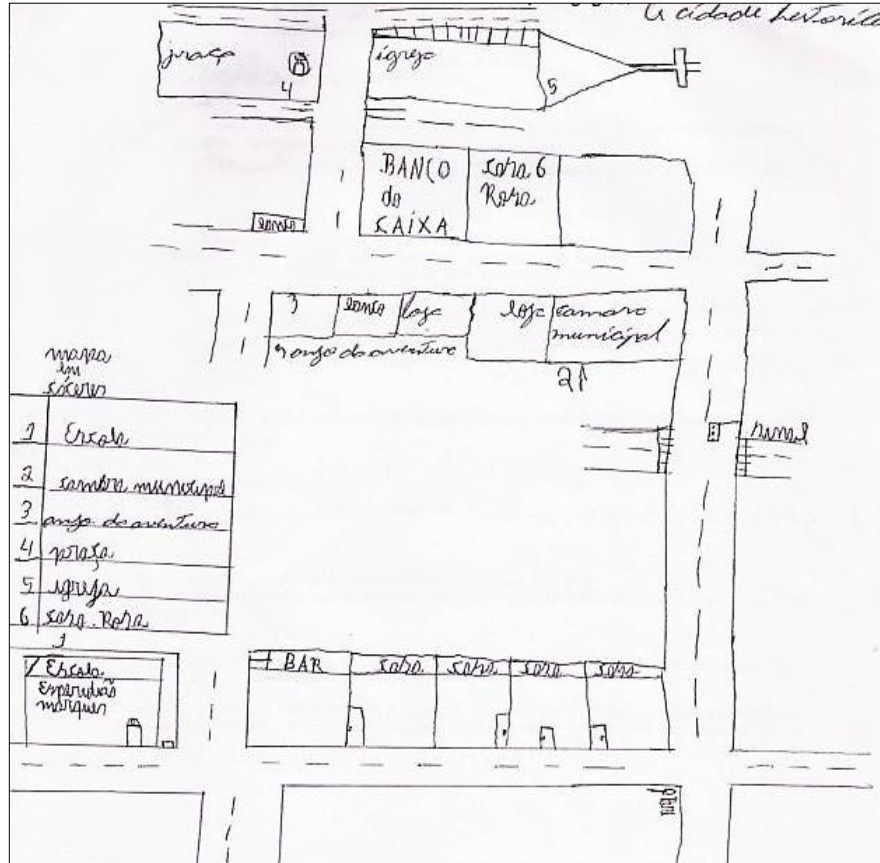 a cidade historica
praça
4
igreja
5
BANCO
da
CAIXA
casa 6
Rosa
banco
3
banco
loja
loja
camara
municipal
anjo da aventura
2
mapa
em
1 Escola
2 camara municipal
3 anjo da aventura
4 praça
5 igreja
6 casa Rosa
1
Escola
Esperidião
marques
BAR
casa
casa
casa
casa